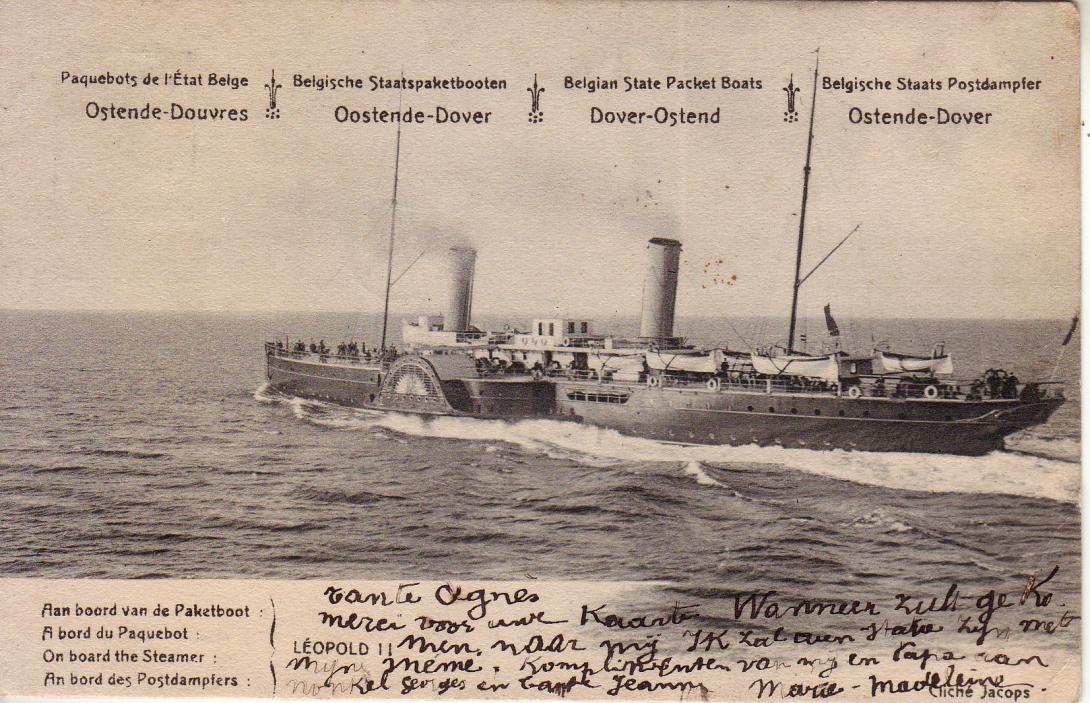 Paquebots de l'État Belge
Ostende-Douvres
Belgische Staatspaketbooten
Oostende-Dover
Belgian State Packet Boats
Dover-Ostend
Belgische Staats Postdampfer
Ostende-Dover
Aan boord van de Paketboot :
A bord du Paquebot :
On board the Steamer :
An bord des Postdampfers :
LÉOPOLD II
tante Agnes
merci voor uwe Kaarte Wanneer zult ge Ko
men. naar mij IK zal aen statie zijn met
mijne Meme. Komplimenten van mij en Papa aan
nonkel Georges en tante Jeanne Marie-Madeleine.
Cliché Jacops